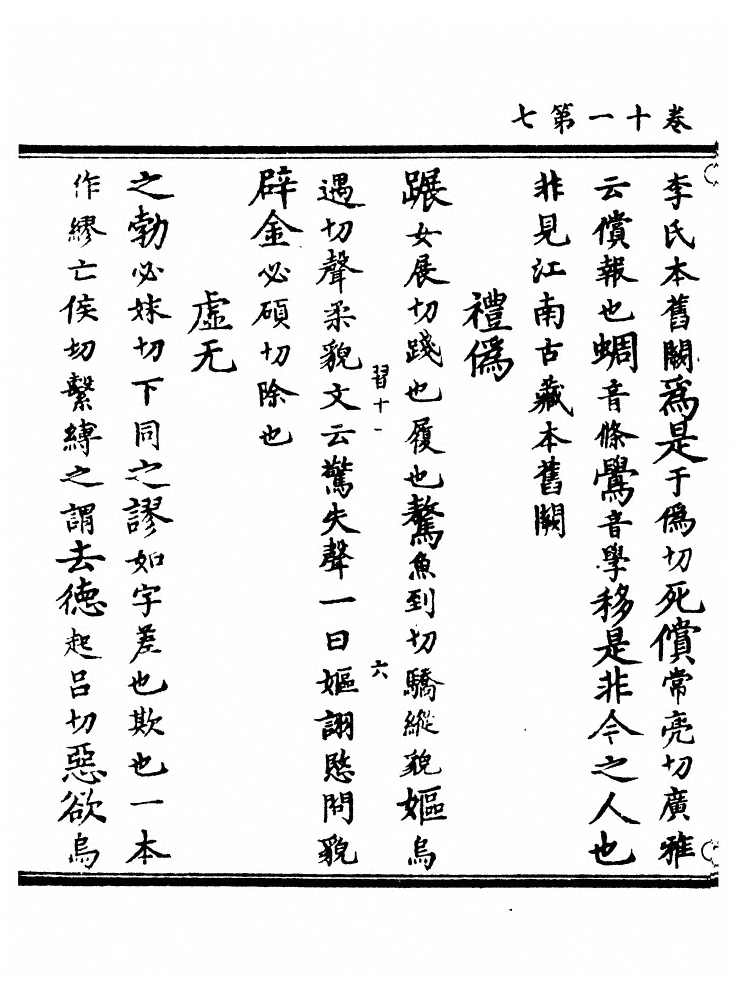 卷十一第七
李氏本舊闕爲是于僞切死償常亮切廣雅
云償報也蜩音條鷽音學移是非今之人也
非見江南古藏本舊闕
禮僞
蹍女展切踐也履也驁魚到切驕縱貌嫗烏
習十一
六
遇切聲柔貌文云驚失聲一曰嫗詡愍問貌
辟金必碩切除也
虛无
之勃必妹切下同之謬如字差也欺也一本
作繆亡侯切繫縛之謂去德起呂切惡欲烏